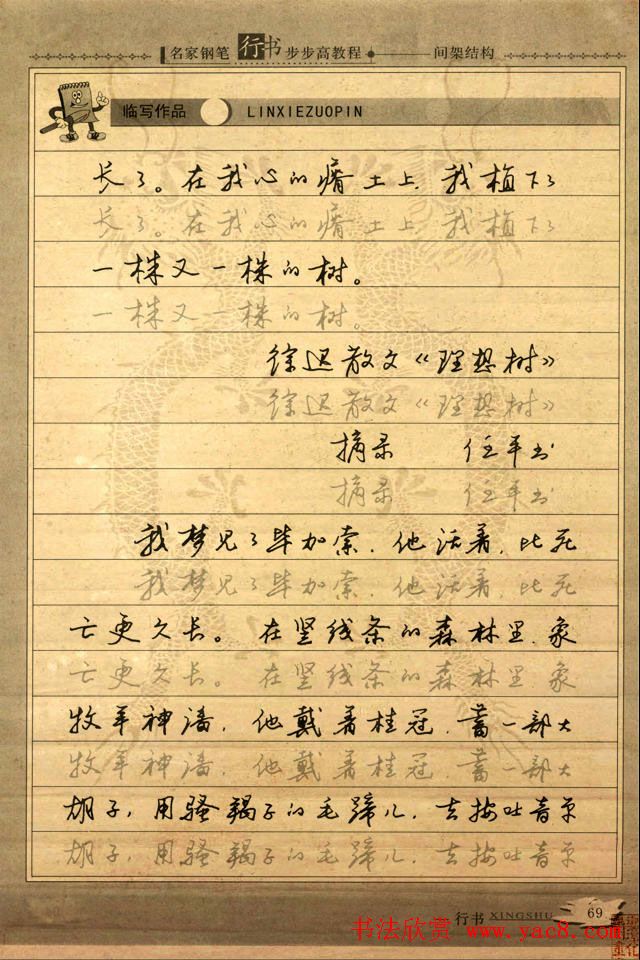 名家钢笔行书步步高教程 间架结构
临写作品 LINXIEZUOPIN
长了。在我心的瘠土上,我植下了
长了。在我心的瘠土上,我植下了
一株又一株的树。
一株又一株的树。
徐迟散文《理想树》
徐迟散文《理想树》
摘录 任平书
摘录 任平书
我梦见了毕加索,他活着,比死
我梦见了毕加索,他活着,比死
亡更久长。在竖线条的森林里,象
亡更久长。在竖线条的森林里,象
牧羊神潘,他戴着桂冠,蓄一部大
牧羊神潘,他戴着桂冠,蓄一部大
胡子,用骚羯子的毛蹄儿,去按吐音单
胡子,用骚羯子的毛蹄儿,去按吐音单
行书 XINGSHU 69
书法欣赏 www.yac8.com